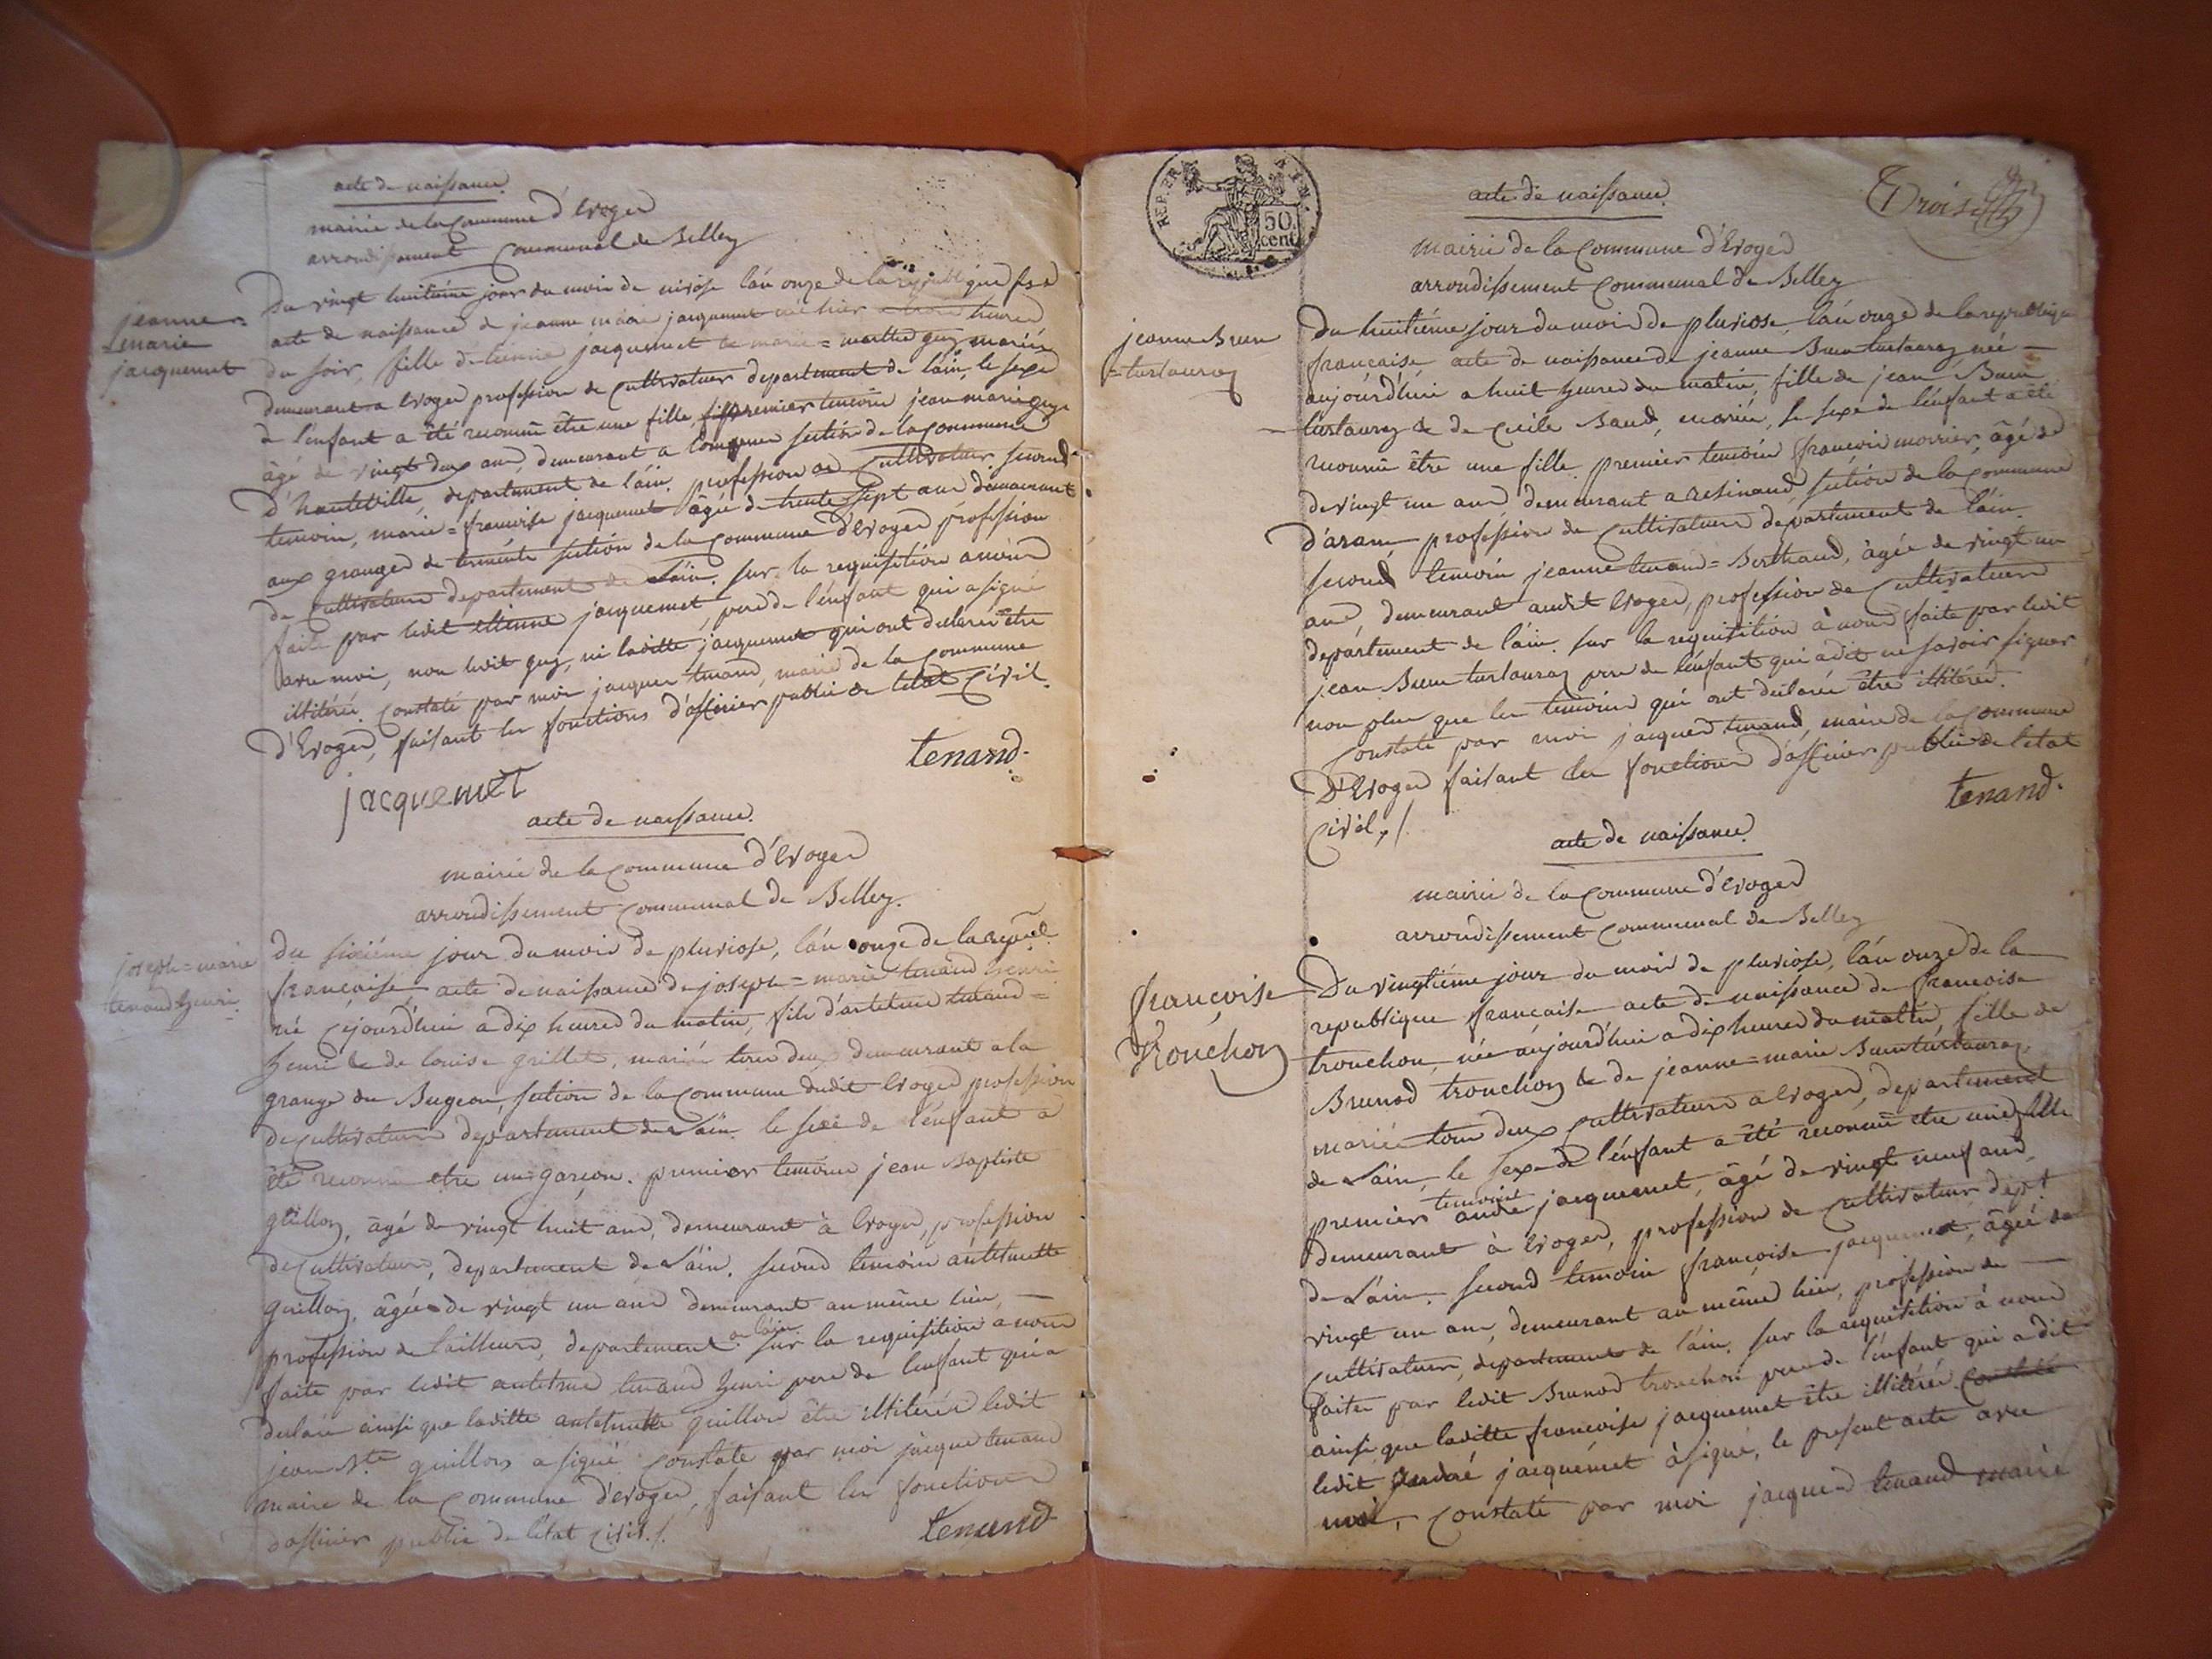 acte de naissance.
mairie de la Commune d'Evoges
arrondissement Communal de Belley
jeanne=
marie
jacquemet
Du vingt huitième jour du mois de nivose l'an onze de la republique fse
acte de naissance de jeanne marie jacquemet née hier a trois heures
du soir, fille d'etienne jacquemet & marie=marthe guy mariés
demeurant a Evoges profession de Cultivateur departement de l'ain, le sexe
de l'enfant a été reconnu être une fille, premier temoin jean marie guy
âgé de vingt deux ans, demeurant a section de la Commune
d'hauteville, departement de l'ain, profession de Cultivateur second
temoin, marie=francoise jacquemet âgée de trente sept ans demeurant
aux granges de section de la Commune d'Evoges profession
de Cultivateurs departement de l'ain. sur la requisition a nous
faite par ledit etienne jacquemet, pere de l'enfant qui a signé
avec moi, non ledit guy, ni laditte jacquemet qui ont declarés être
illitérés. Constaté par moi jacques tenand, maire de la Commune
d'Evoges, faisant les fonctions d'officier public de l'etat Civil.
jacquemet tenand.
acte de naissance.
mairie de la Commune d'Evoges
arrondissement Communal de Belley.
joseph=marie
tenand henri
du sixiéme jour du mois de pluviose, l'an onze de la repub.
francaise, acte de naissance de joseph=marie tenand henri
né cejourd'hui a dix heures du matin, fils d'antelme tenand=
henri & de louise grillet, mariés tous deux demeurant a la
grange du Bugeon, section de la Commune dudit Evoges profession
de Cultivateurs departement de L'ain. le sexe de l'enfant a
été reconnu etre un garçon. premier temoin jean Baptiste
guillon, âgé de vingt huit ans, demeurant à Evoges, profession
de Cultivateurs, departement de L'ain. second temoin antelmette
guillon, âgée de vingt un ans demeurant au même lieu, —
profession de tailleurs, departement de l'ain sur la requisition a nous
faite par ledit antelme tenand henri pere de l'enfant qui a
declaré ainsi que laditte antelmette guillon être illitérés ledit
jean Bte guillon a signé Constaté par moi jacques tenand
maire de la Commune d'evoges, faisant les fonctions
d'officier public de l'etat Civil./.
tenand
REP. FRA.
50 cent.
Trois
acte de naissance.
mairie de la Commune d'Evoges
arrondissement Communal de Belley
jeanne Brun
=turlouray
Du huitiéme jour du mois de pluviose, l'an onze de la republique
francaise acte de naissance de jeanne Brun turlauray née —
aujourd'hui a huit heures du matin, fille de jean Brun
turlauray & de Cecile Baud, mariés, le sexe de l'enfant a été
reconnu être une fille, premier temoin francois morrier, âgé de
de vingt un ans, demeurant a resinand, section de la Commune
d'aranc profession de Cultivateurs departement de l'ain.
second temoin jeanne tenand=Berthaud, âgée de vingt un
ans, demeurant audit Evoges, profession de Cultivateurs
departement de l'ain. sur la requisition à nous faite par ledit
jean Brun turlouray pere de l'enfant qui a dit ne savoir signer
non plus que les temoins qui ont declarés être illitérés.
Constaté par moi jacques tenand, maire de la Commune
D'Evoges faisant les fonctions d'officier public de l'etat
Civil./.
tenand.
acte de naissance.
mairie de la Commune d'evoges
arrondissement Communal de Belley
françoise
trouchon
Du vingtiéme jour du mois de pluviose, l'an onze de la
republique francaise acte de naissance de francoise
trouchon, née aujourd'hui a dix heures du matin, fille de
Brunod trouchon & de jeanne=marie Brun turlauray.
mariés tous deux Cultivateurs a Evoges, departement
de L'ain, le sexe de l'enfant a été reconnu etre une fille
premier temoin andré jacquemet, âgé de vingt neuf ans,
demeurant à Evoges, profession de Cultivateur dept
de L'ain. second temoin francoise jacquemet, âgée de
vingt un ans, demeurant au même lieu, profession de —
Cultivateurs, departement de l'ain. sur la requisition à nous
faite par ledit Brunod trouchon pere de l'enfant qui a dit
ainsi que laditte francoise jacquemet être illitérés. Constaté
ledit andré jacquemet à signé, le present acte avec
moi, Constaté par moi jacques tenand maire